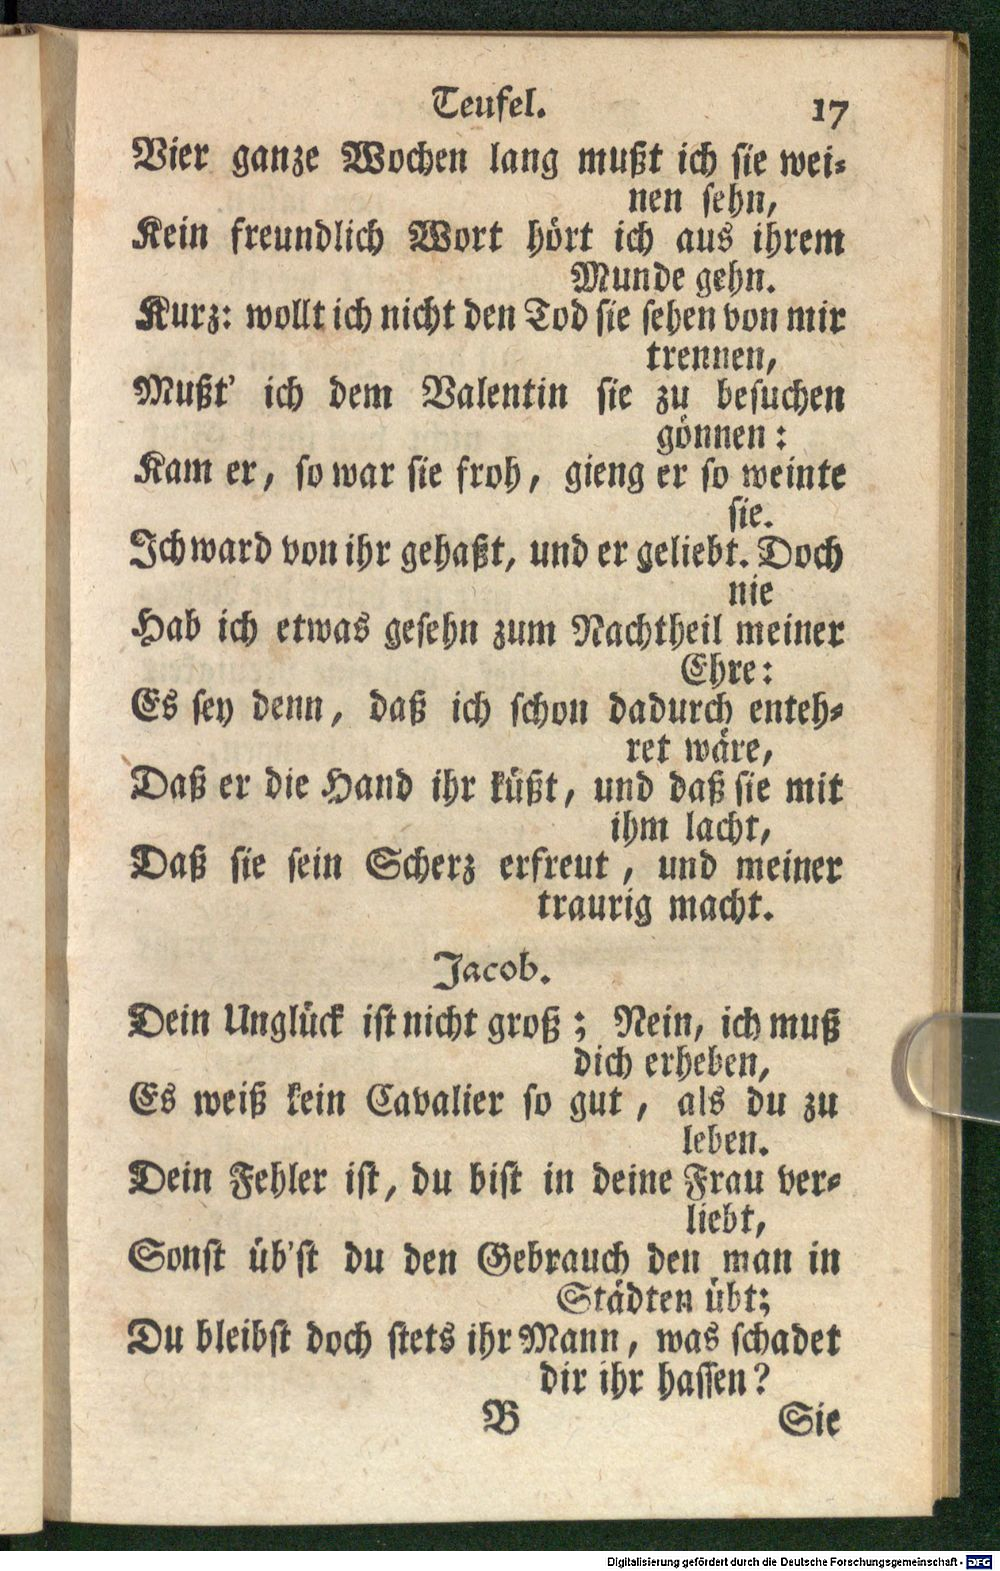 Teufel. 17
Vier ganze Wochen lang mußt ich sie wei-
nen sehn,
Kein freundlich Wort hört ich aus ihrem
Munde gehn.
Kurz: wollt ich nicht den Tod sie sehen von mir
trennen,
Mußt' ich dem Valentin sie zu besuchen
gönnen:
Kam er, so war sie froh, gieng er so weinte
sie.
Ich ward von ihr gehaßt, und er geliebt. Doch
nie
Hab ich etwas gesehn zum Nachtheil meiner
Ehre:
Es sey denn, daß ich schon dadurch enteh-
ret wäre,
Daß er die Hand ihr küßt, und daß sie mit
ihm lacht,
Daß sie sein Scherz erfreut, und meiner
traurig macht.
Jacob.
Dein Unglück ist nicht groß; Nein, ich muß
dich erheben,
Es weiß kein Cavalier so gut, als du zu
leben.
Dein Fehler ist, du bist in deine Frau ver-
liebt,
Sonst üb'st du den Gebrauch den man in
Städten übt;
Du bleibst doch stets ihr Mann, was schadet
dir ihr hassen?
B Sie
Digitalisierung gefördert durch die Deutsche Forschungsgemeinschaft - DFG